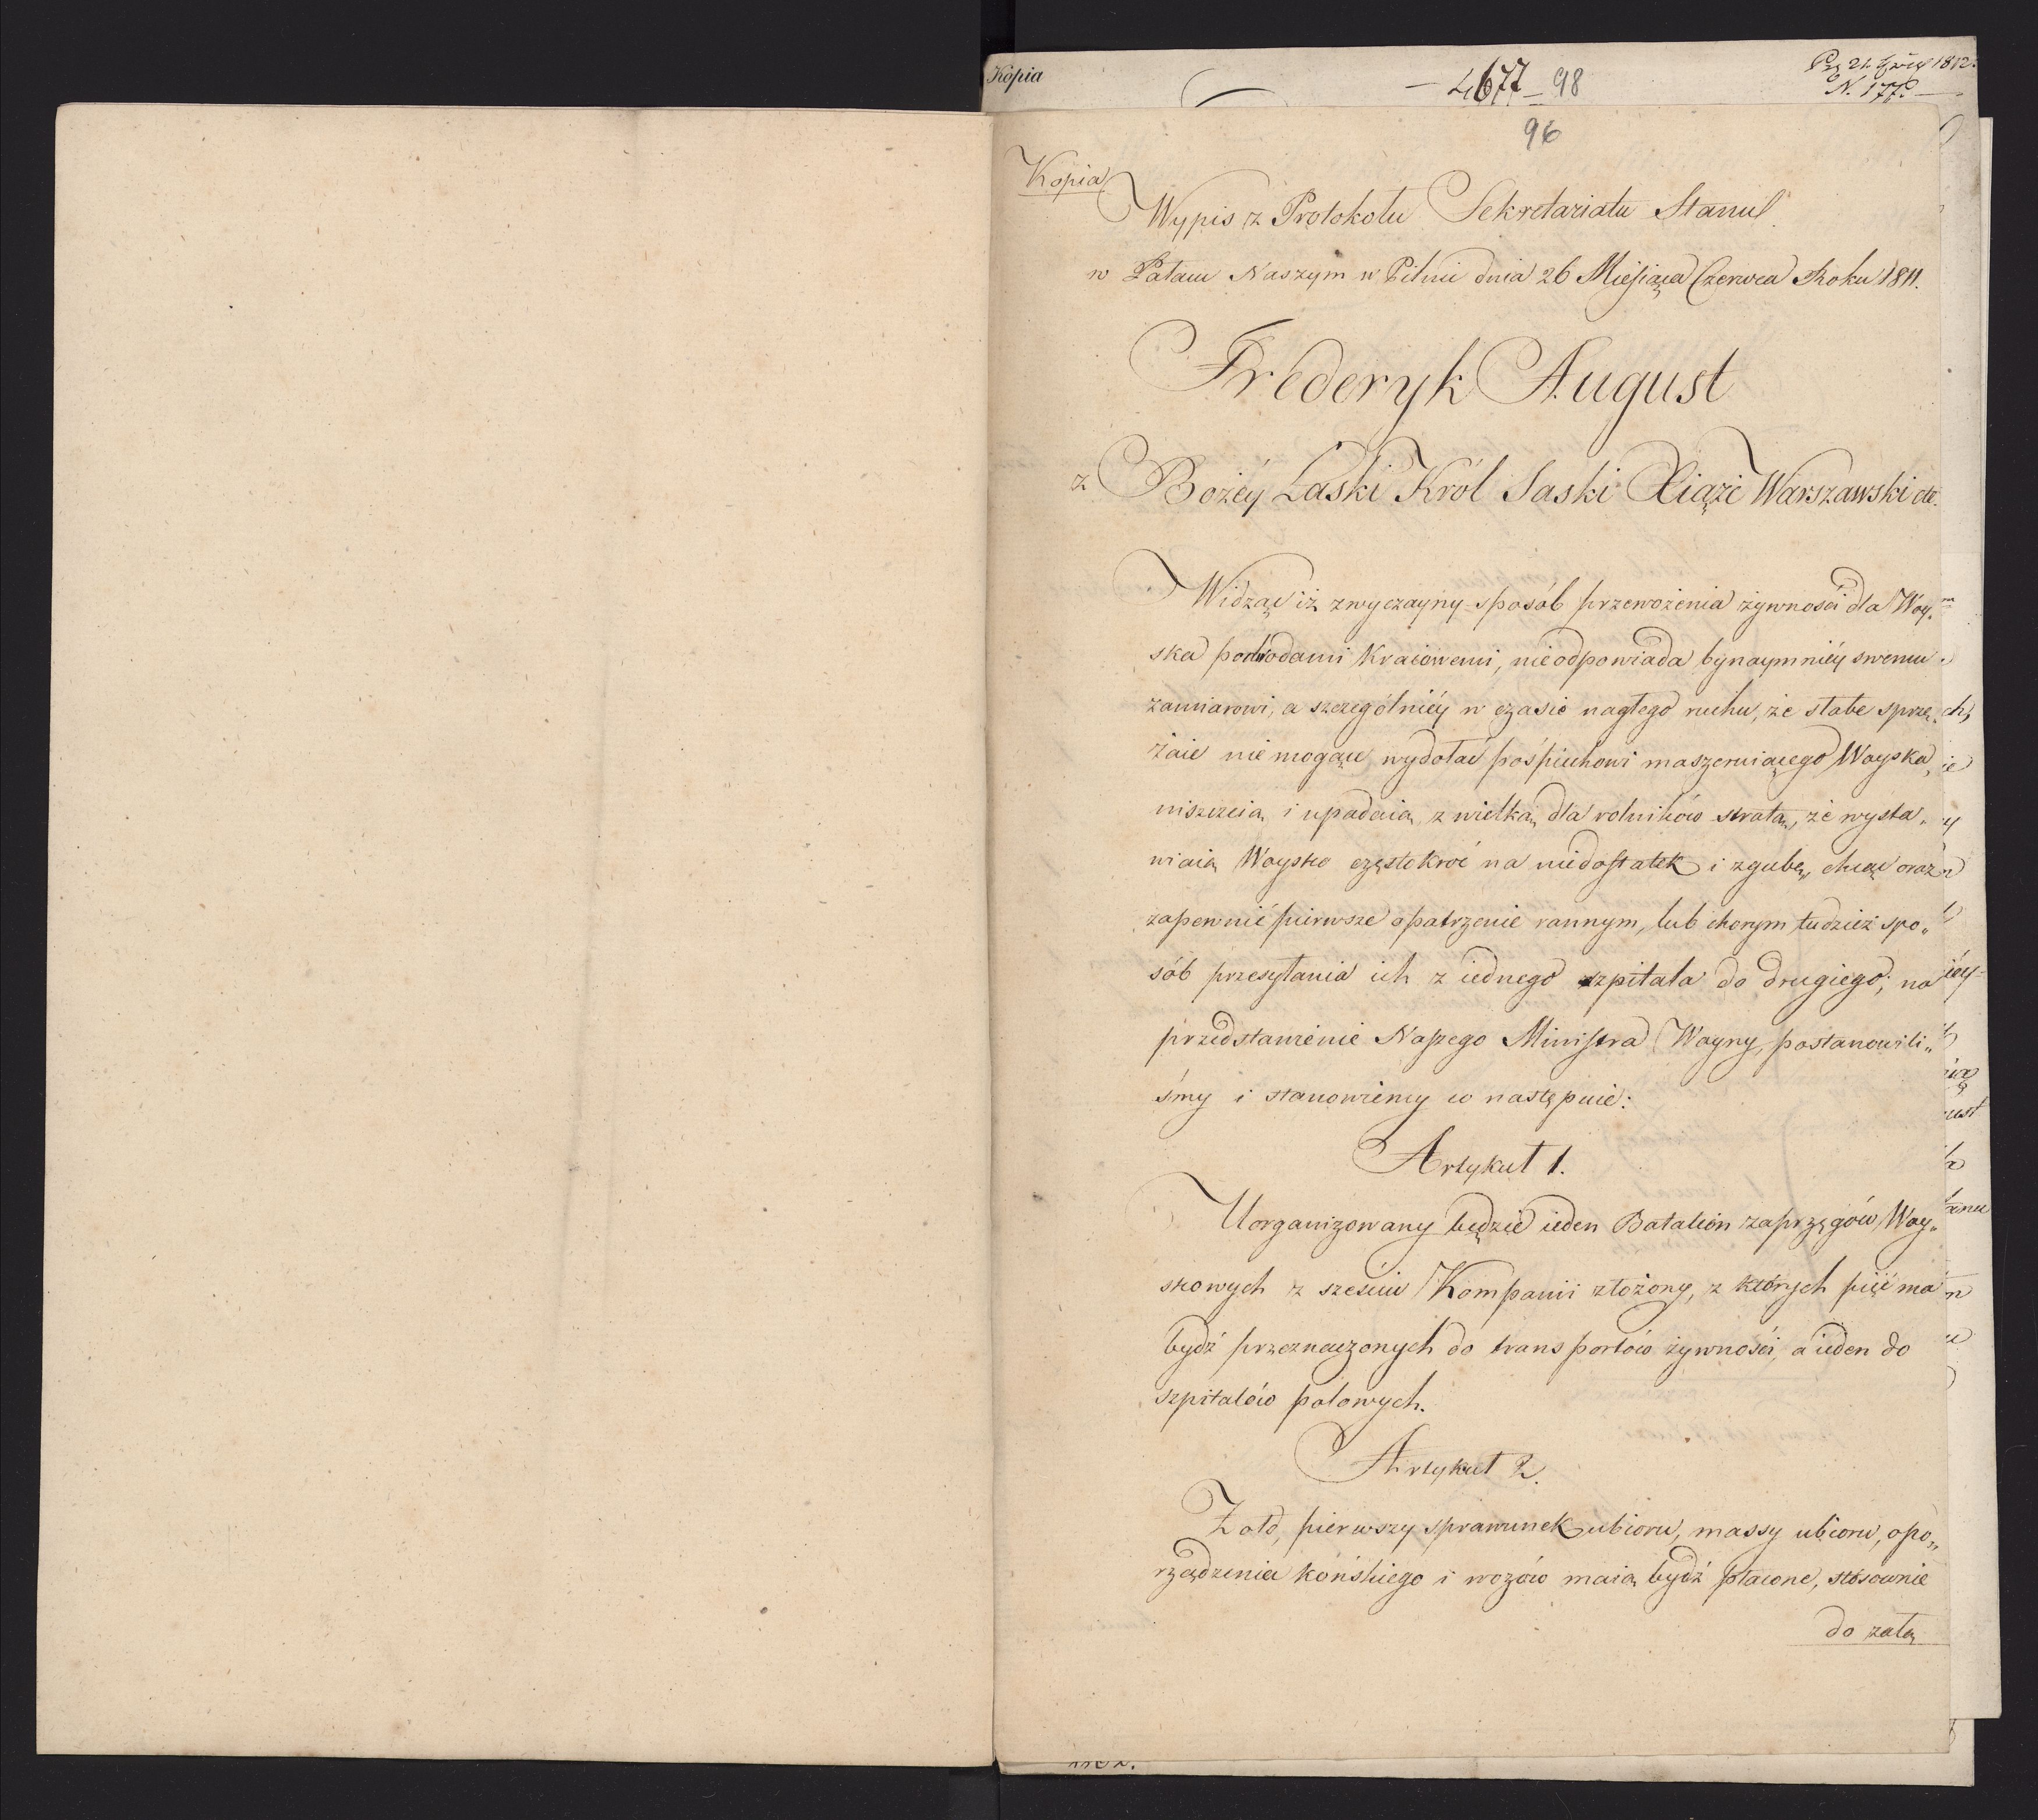 Kopia
4677 - 98
N. 177
96
Kopia
Wypis z Protokołu Sekretariatu Stanu
w Pałacu Naszym w Pilnic dnia 26 Miesiąca Czerwca Roku 1811.
Frederyk August
z Bożéy Łaski Król Saski Xiąże Warszawski etc.
Widząc iż zwyczayny sposób przewożenia żywności dla Woy„
ska podwodami Kraiowemi, nieodpowiada bynaymniéy swemu
zamiarowi, a szczególniéy w czasie nagłego ruchu, że słabe sprzę„
żaie nie mogąc wydołać pośpiechowi maszeruiącego Woyska,
niszczeią i upadaią z wielką dla rolników stratą, że wysta„
wiaią Woysko częstokroć na niedostatek i zgubę, chcąc oraz
zapewnić pierwsze opatrzenie rannym, lub chorym tudzież spo„
sób przesyłania ich z iednego szpitala do drugiego; na
przedstawienie Naszego Ministra Woyny, postanowili„
śmy i stanowiemy co następuie:
Artykuł 1.
Uorganizowany będzie ieden Batalion zaprzęgów Woy„
skowych z sześciu Kompanii złożony, z których pięć ma
bydź przeznaczonych do transportów żywności, a ieden do
szpitalów polowych.
Artykuł 2.
Żołd, pierwszy sprawunek ubioru, massy ubioru, opo„
rządzenia końskiego i wozów maią bydź płacone, stosownie
do załą